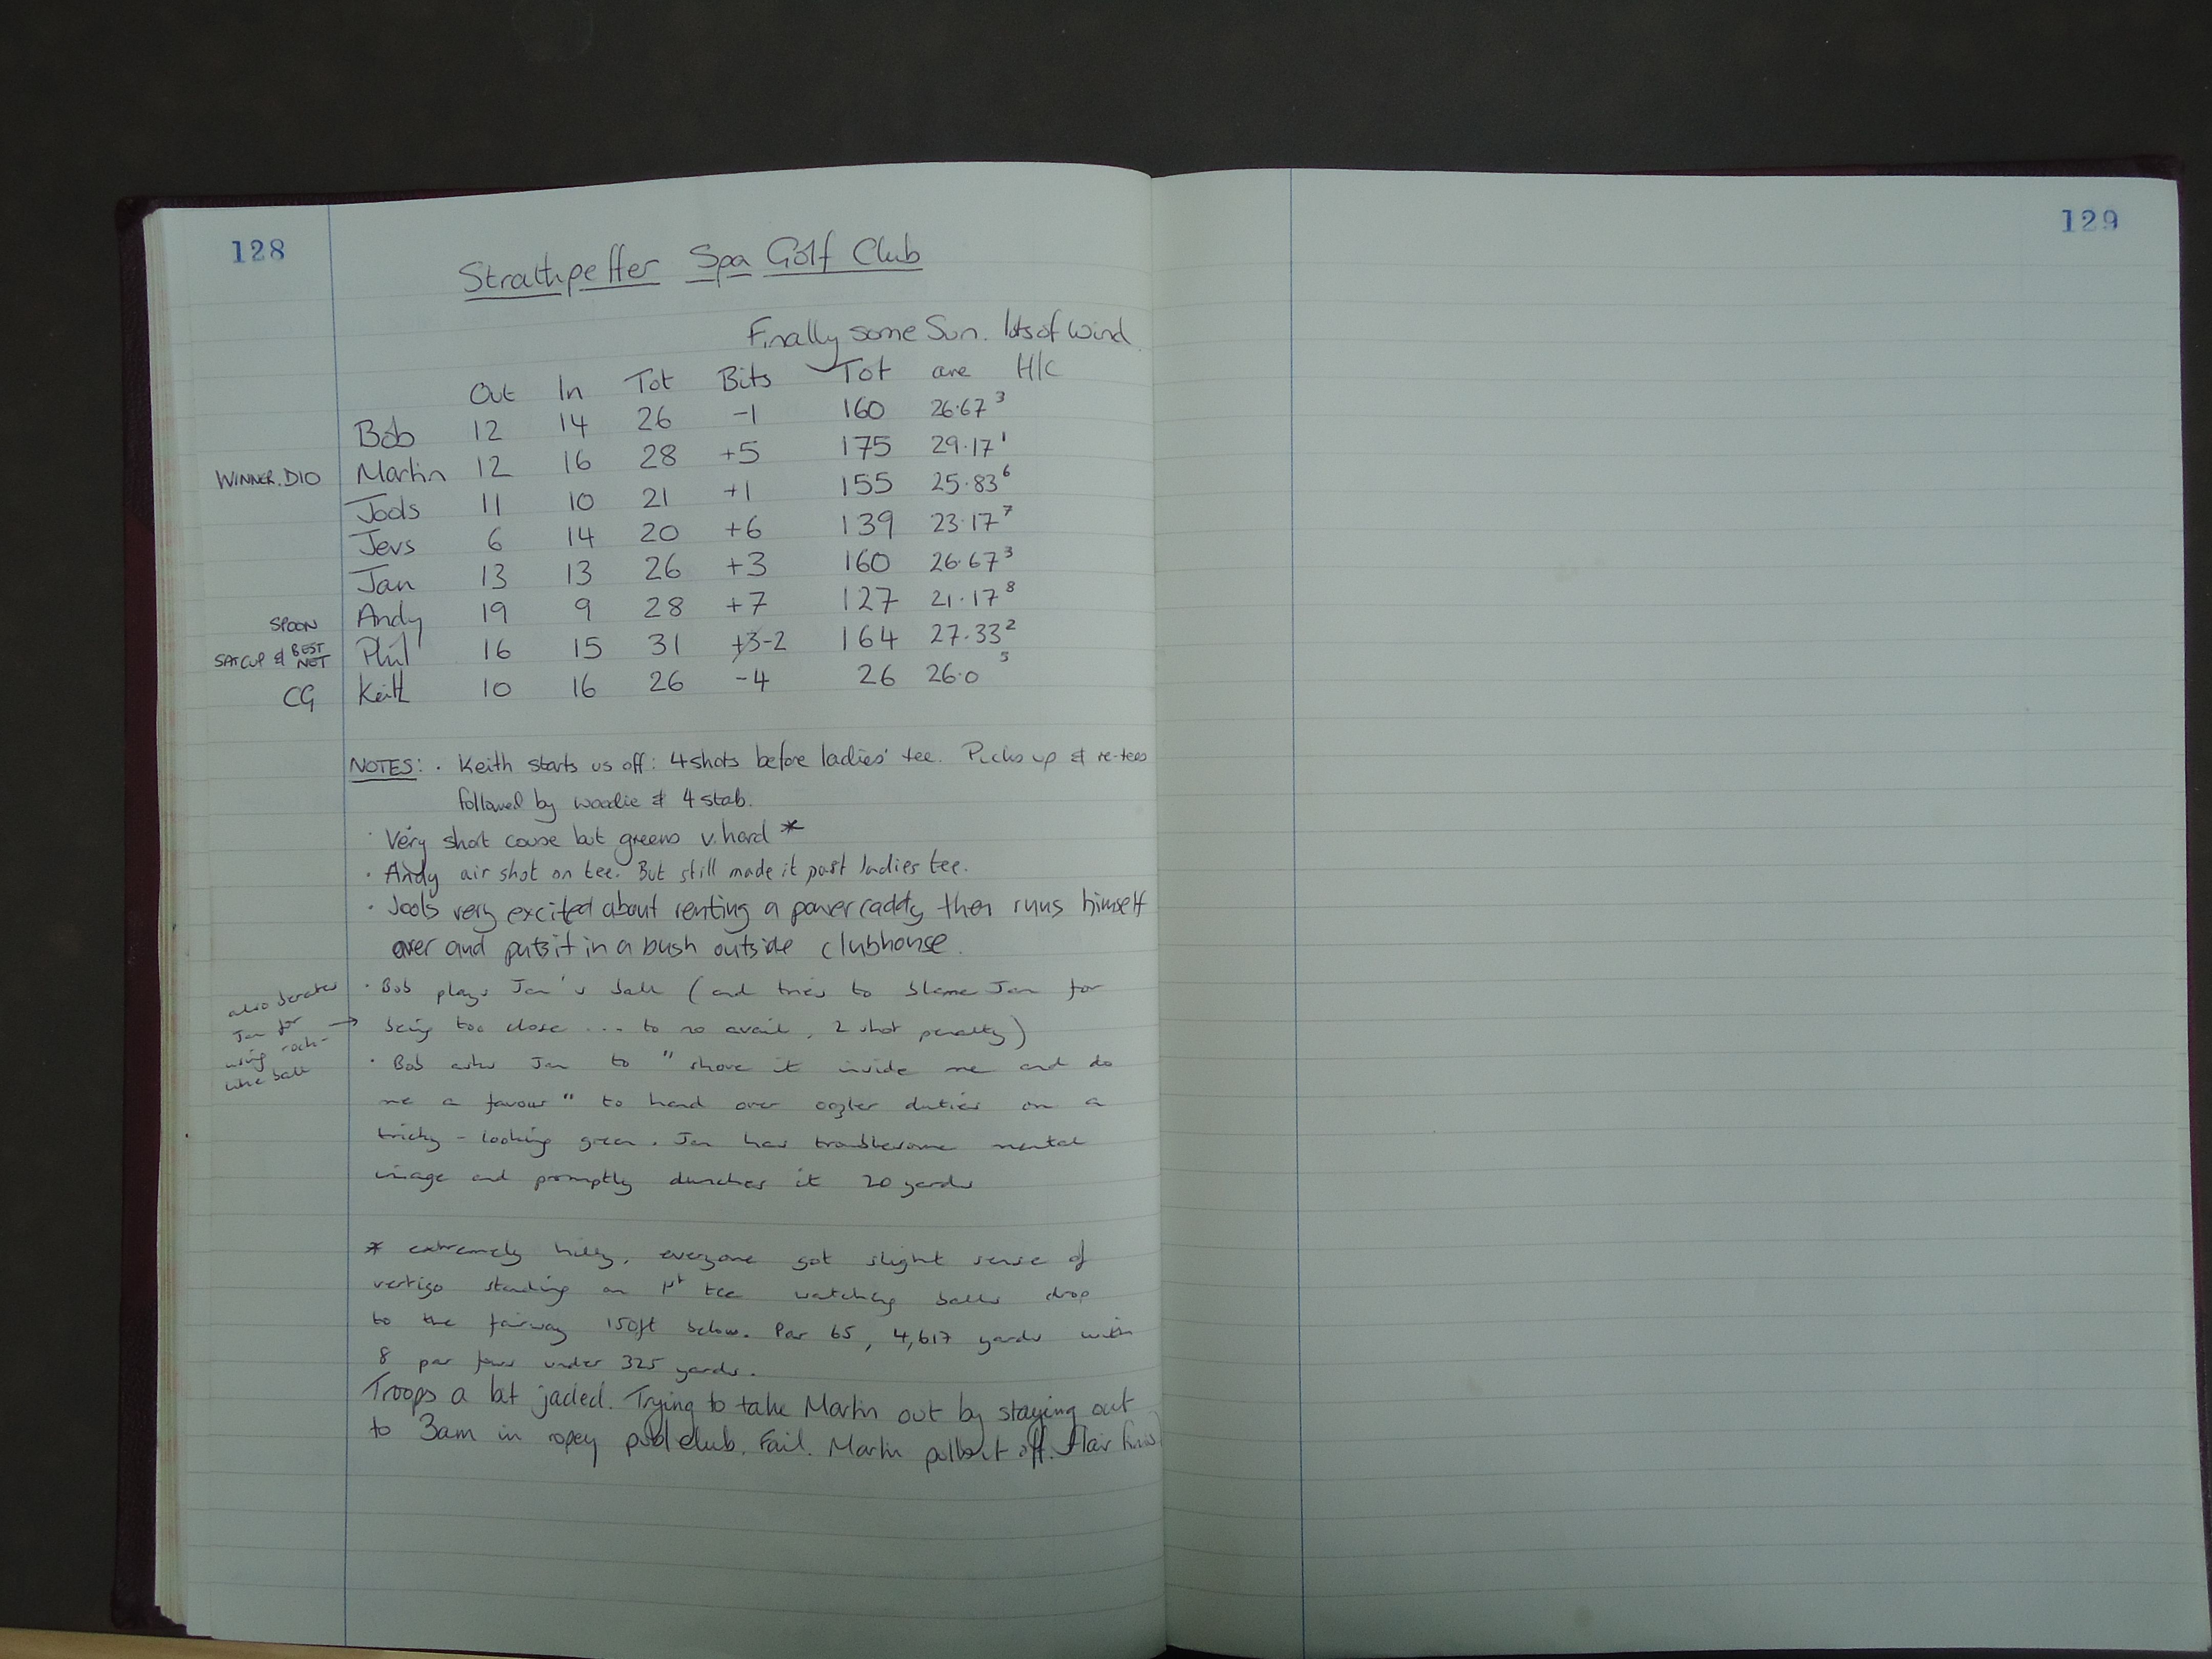 128
129
Strathpeffer Spa Golf Club
Finally some Sun. lots of Wind
Out In Tot Bits Tot ave H/C
Bob 12 14 26 -1 160 26.67 3
WINNER. D10 Martin 12 16 28 +5 175 29.17 1
Jools 11 10 21 +1 155 25.83 6
Jevs 6 14 20 +6 139 23.17 7
Jan 13 13 26 +3 160 26.67 3
SPOON Andy 19 9 28 +7 127 21.17 8
SAT CUP & BEST NET Phil 16 15 31 +3-2 164 27.33 2
CG Keith 10 16 26 -4 26 26.0 5
NOTES: · Keith starts us off: 4 shots before ladies' tee. Picks up & re-tees
followed by woodie & 4 stab.
· Very short course but greens v. hard *
· Andy air shot on tee. But still made it past ladies tee.
· Jools very excited about renting a power caddy then runs himself
over and puts it in a bush outside clubhouse.
· Bob plays Jan's ball (and tries to blame Jan for
being too close ... to no avail, 2 shot penalty)
also berates
Jan for
using
ball
· Bob asks Jan to "shove it inside me and do
me a favour" to hand over duties on a
tricky-looking green. Jan has troublesome mental
image and promptly dunches it 20 yards
* extremely hilly, everyone got slight sense of
vertigo standing on 1st tee watching balls drop
to the fairway 150ft below. Par 65, 4,617 yards with
8 par fours under 325 yards.
Troops a bit jaded. Trying to take Martin out by staying out
to 3am in ropey pub/club. Fail. Martin pulls it off. Flair